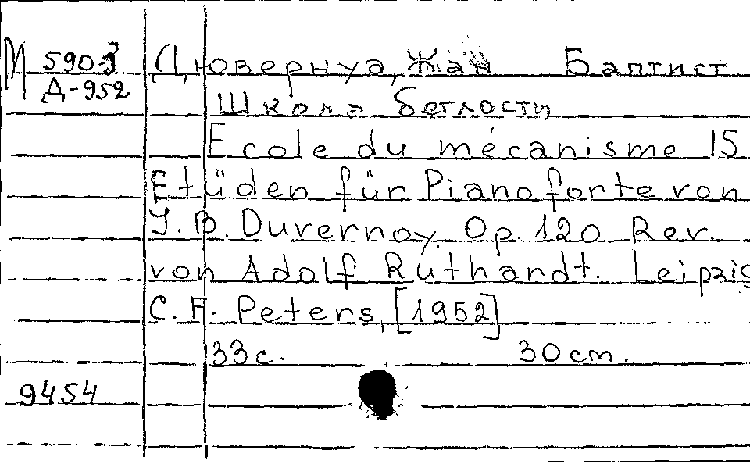 М 590-3 Дювернуа, Жан Баптист
Д-952
Школа беглости
Ecole du mécanisme 15
Etüden für Pianoforte von
J. B. Duvernoy. Op. 120 Rev.
von Adolf Ruthardt. Leipzig
C. F. Peters, [1952]
33 с. 30 cm.
9454